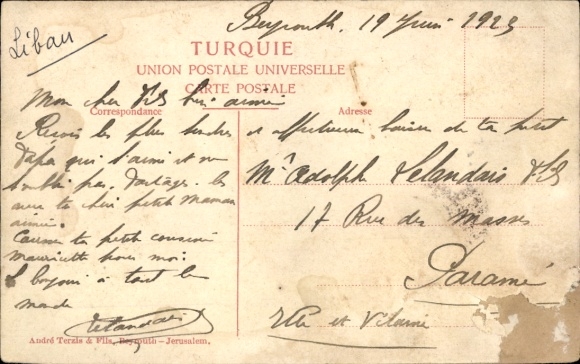 Liban
Beyrouth, 19 Juin 1923
TURQUIE
UNION POSTALE UNIVERSELLE
CARTE POSTALE
Mon cher Fils bien aimé
Correspondance
Adresse
Reçois les plus tendres et affectueux baisers de ton petit
Papa qui t'aime et ne
t'oublie pas. Partage les
avec ta chère petite Maman
aimée.
Mr Adolph Lelandais fils
17 Rue des Masses
Paramé
Ille et Vilaine
Caresse ta petite cousine
Mauricette pour moi.
bonjour à tout le
monde
Lelandais
André Terzis & Fils, Beyrouth—Jerusalem.